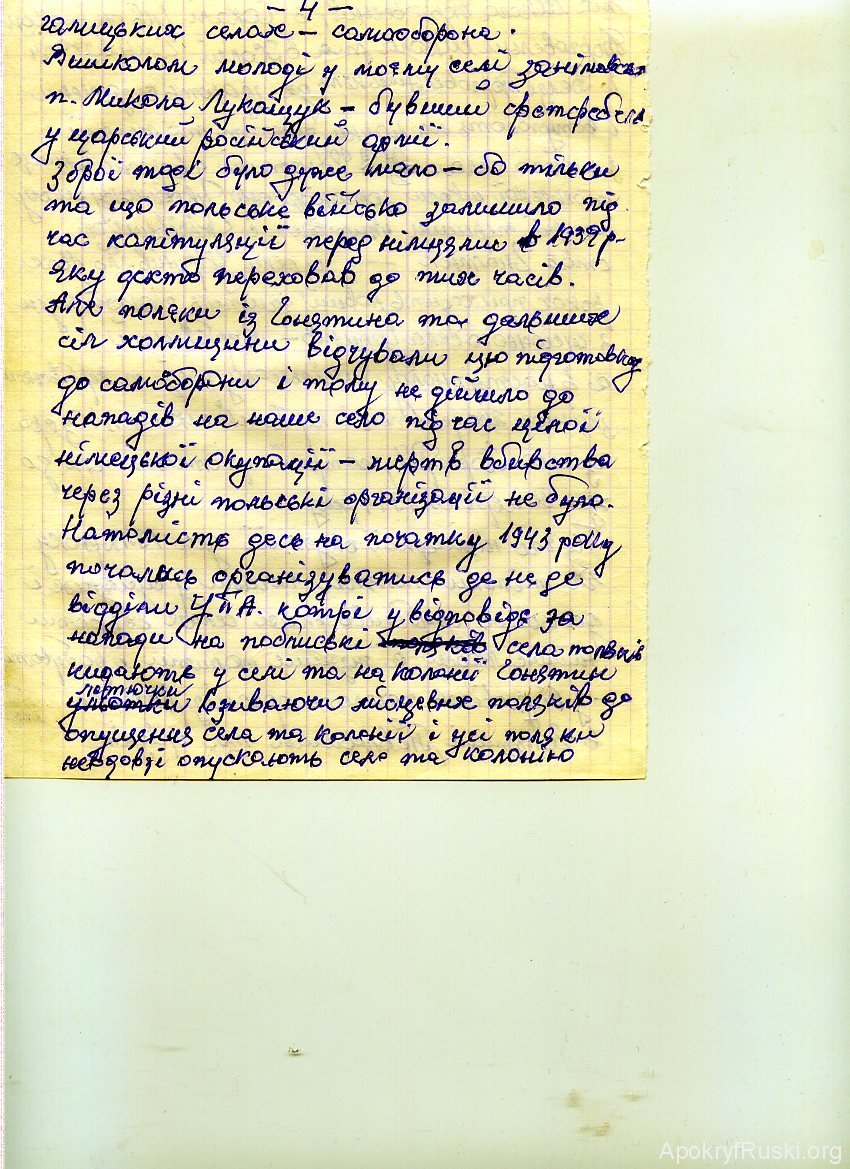 – 4 –
галицьких селах – самооборона.
Вишколом молоді у моєму селі займався
п. Микола Лукащук – бувший фетфебель
у царській російській армії.
Зброї тоді було дуже мало – бо тільки
та що польське військо залишило під
час капітуляції перед німцями в 1939 р.
яку дехто переховав до тих часів.
Але поляки із Гонятина та дальших
сіл холмщини відчували цю підготовку
до самоборони і тому не дійшло до
нападів на наше село під час цілої
німецької окупації – жертв вбивства
через різні польські організації не було.
Натомість десь на початку 1943 року
почались організуватись де не де
відділи УПА. котрі у відповіді за
напади на поблиські села поляків
кидають у селі та на колонії Гонятин
летючки взиваючи місцевих поляків до
опущення села та колонії і усі поляки
невдовзі опускають село та колонію
ApokryfRuski.org